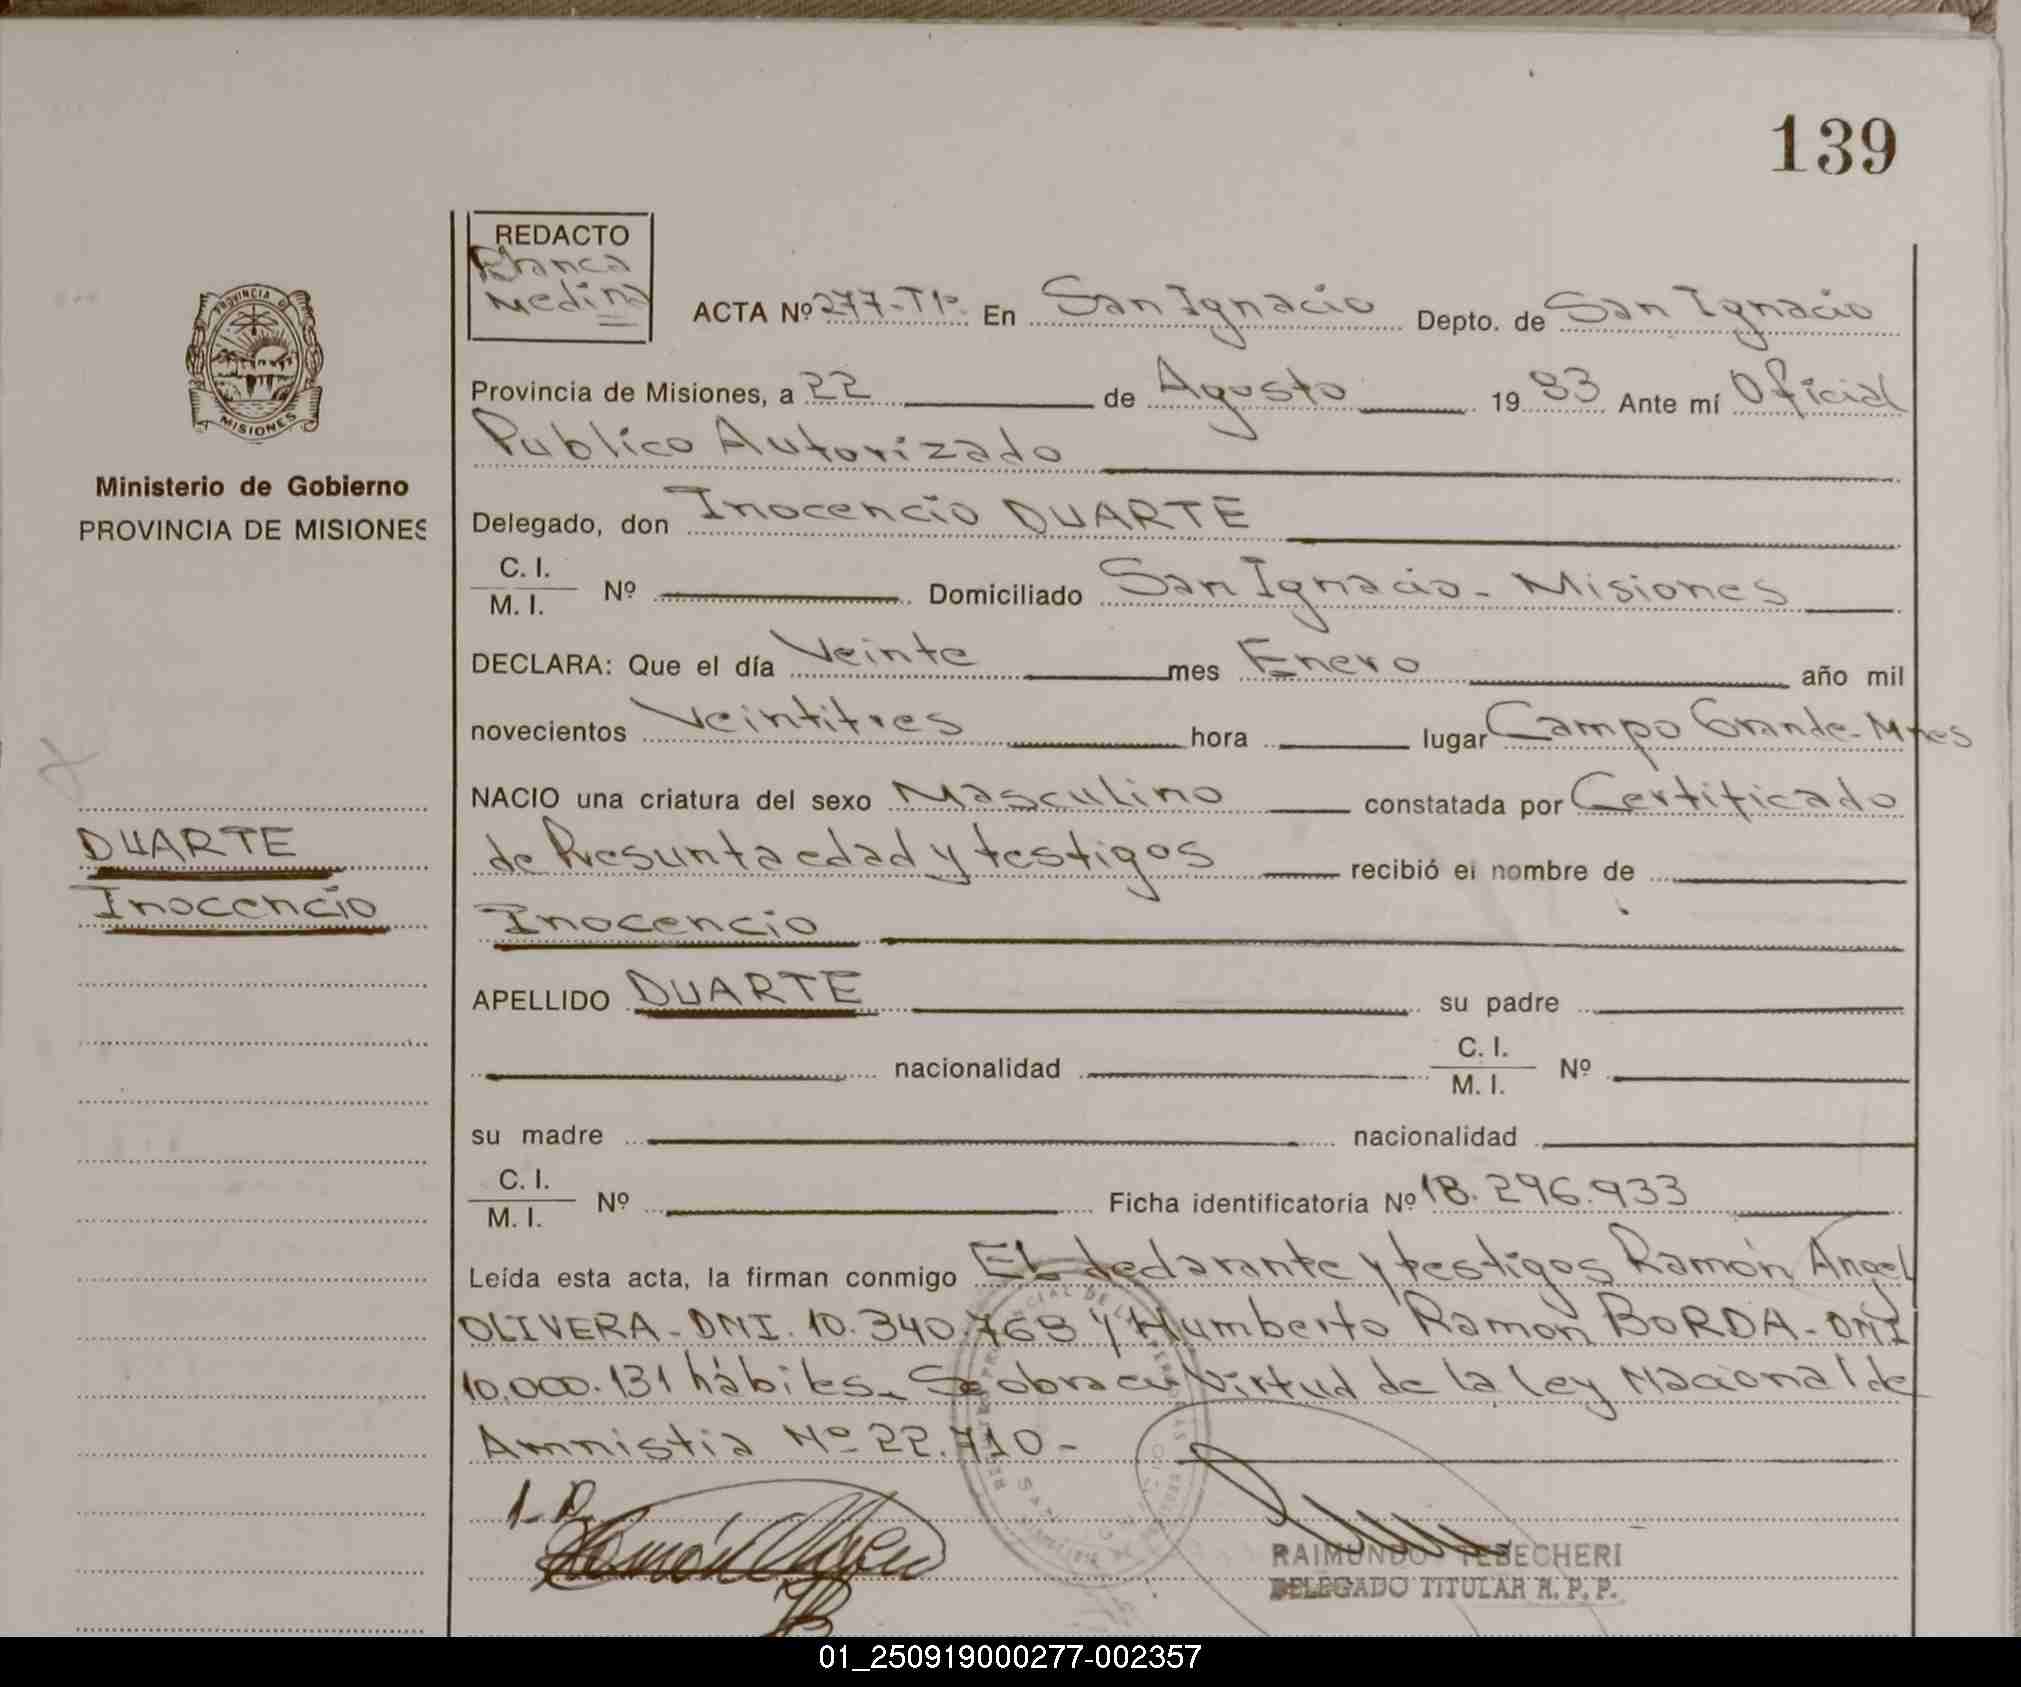 139
REDACTO
Blanca
Medina
ACTA Nº 277-Tº- En San Ignacio Depto. de San Ignacio
PROVINCIA DE
MISIONES
Provincia de Misiones, a 22 de Agosto 1983 Ante mí Oficial
Publico Autorizado
Ministerio de Gobierno
PROVINCIA DE MISIONES
Delegado, don Inocencio DUARTE
C. I.
M. I. Nº Domiciliado San Ignacio - Misiones
DECLARA: Que el día Veinte mes Enero año mil
novecientos Veintitres hora lugar Campo Grande - Mnes
NACIO una criatura del sexo Masculino constatada por Certificado
DUARTE
de Presunta edad y testigos recibió el nombre de
Inocencio
Inocencio
APELLIDO DUARTE su padre
nacionalidad C. I.
M. I. Nº
su madre nacionalidad
C. I.
M. I. Nº Ficha identificatoria Nº 18.296.933
Leída esta acta, la firman conmigo El declarante y testigos Ramón Angel
OLIVERA - DNI. 10.340.763 y Humberto Ramon BORDA - DNI
10.000.131 hábiles. Se obra en Virtud de la Ley Nacional de
Amnistia Nº 22.710 -
RAIMUNDO TEBECHERI
DELEGADO TITULAR R. P. P.
01_250919000277-002357